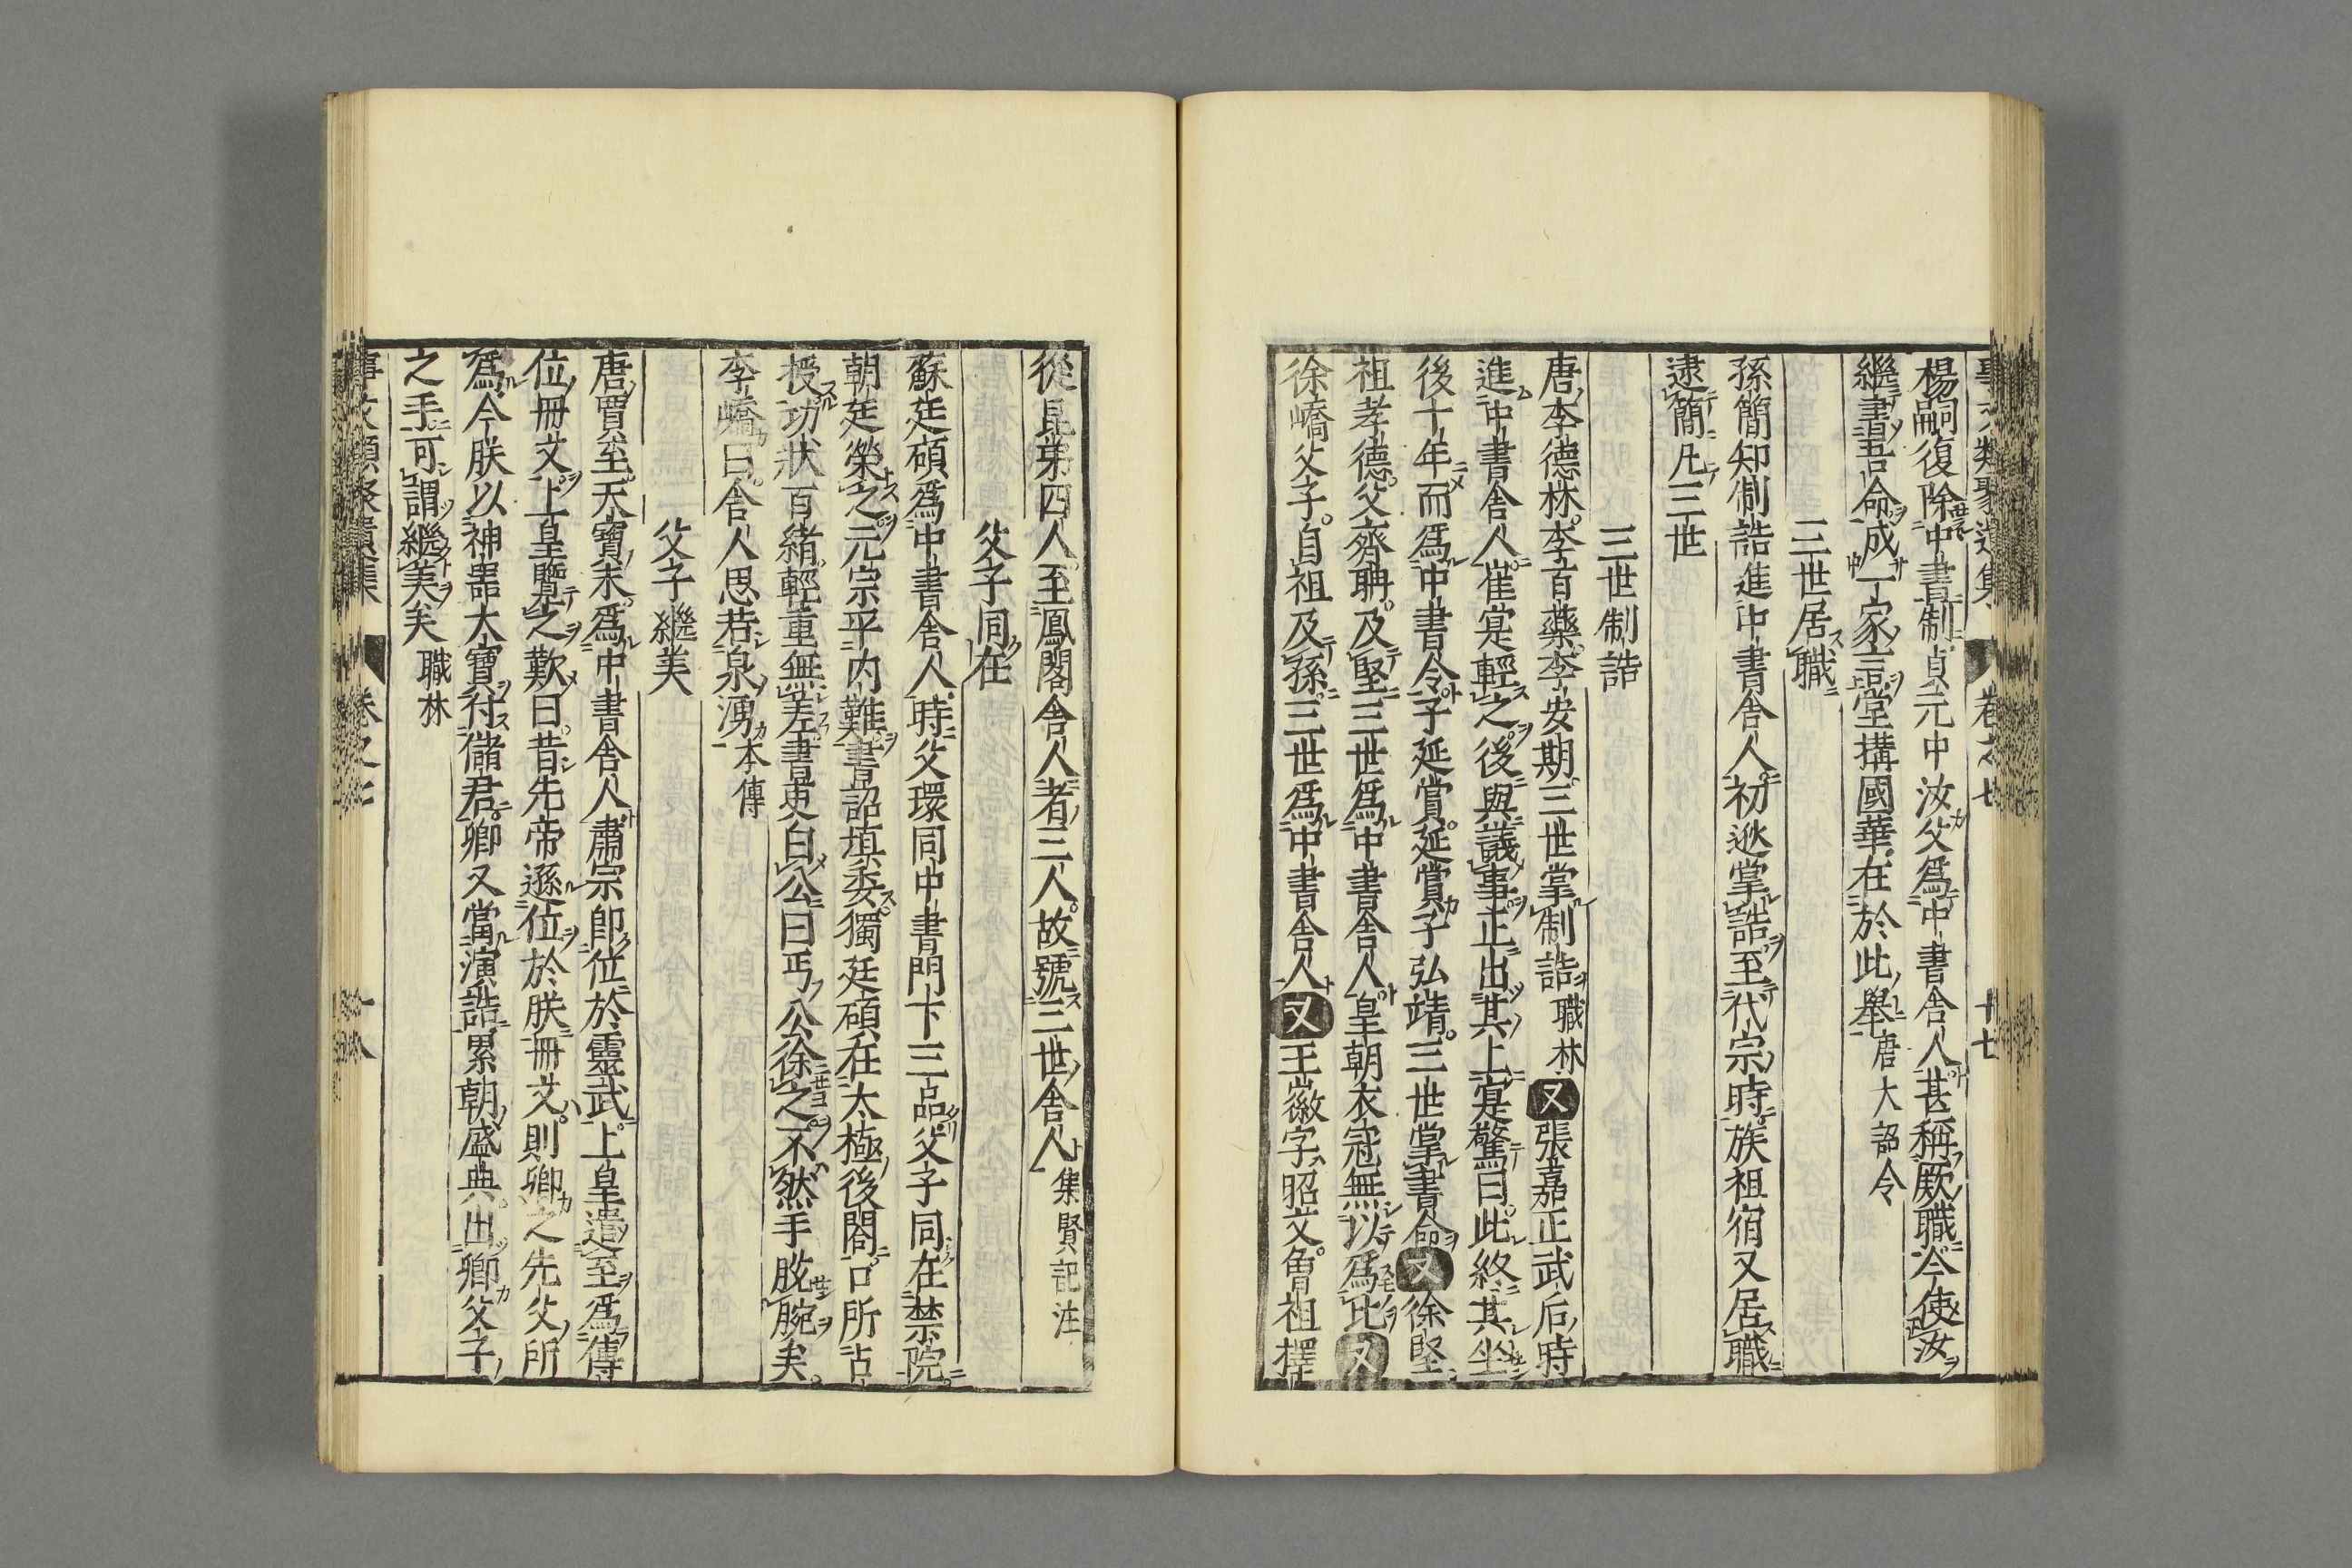 楊嗣復除中書制貞元中汝父爲中書舍人甚稱厥職今使汝
繼書吾命成一家言堂構國華在於此舉唐大詔令
三世居職
孫簡知制誥進中書舍人初逖掌誥至代宗時族祖宿又居職
逮簡凡三世
三世制誥
唐李德林李百藥李安期三世掌制誥職林又張嘉正武后時
進中書舍人崔寔輕之後與議事正出其上寔驚曰此終其坐
後十年而爲中書令子延賞延賞子弘靖三世掌書命又徐堅
祖孝德父齊聃及堅三世爲中書舍人皇朝衣冠無以爲比又
徐嶠父子自祖及孫三世爲中書舍人又王徽字昭文曾祖擇
從昆弟四人至鳳閣舍人者三人故號三世舍人集賢記注
父子同在
蘇廷碩爲中書舍人時父環同中書門下三品父子同在禁院
朝廷榮之元宗平内難書詔填委獨廷碩在太極後閤口所占
授功狀百緒輕重無差書吏白公曰丐公徐之不然手肢腕矣
李嶠曰舍人思若泉湧本傳
父子繼美
唐賈至天寶末爲中書舍人肅宗卽位於靈武上皇遣至爲傳
位冊文上皇覽之歎曰昔先帝遜位於朕冊文則卿之先父所
爲今朕以神器大寶付儲君卿又當演誥累朝盛典出卿父子
之手可謂繼美矣職林